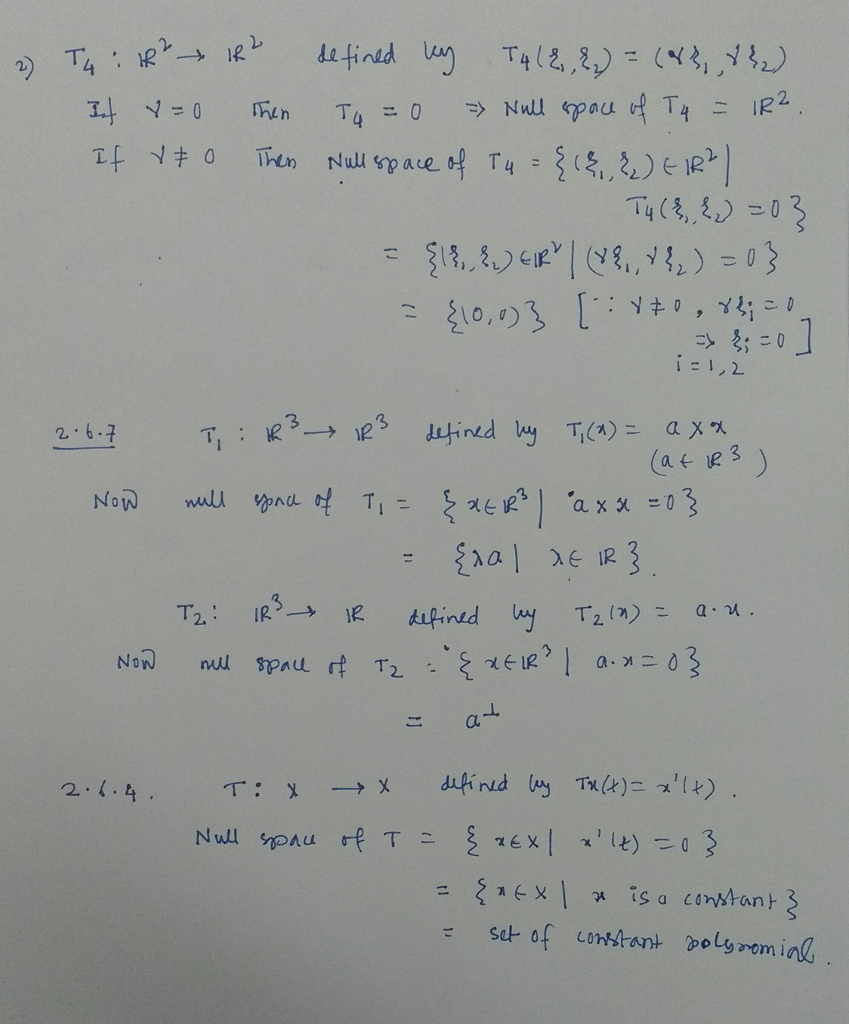 2) T₄ : ℝ² → ℝ² defined by T₄(ξ₁, ξ₂) = (γξ₁, γξ₂)
If γ = 0 Then T₄ = 0 ⇒ Null space of T₄ = ℝ².
If γ ≠ 0 Then Null space of T₄ = {(ξ₁, ξ₂) ∈ ℝ² |
T₄(ξ₁, ξ₂) = 0}
= {(ξ₁, ξ₂) ∈ ℝ² | (γξ₁, γξ₂) = 0}
= {(0,0)} [∵ γ ≠ 0, γξᵢ = 0
⇒ ξᵢ = 0]
i = 1, 2
2.6.7 T₁ : ℝ³ → ℝ³ defined by T₁(x) = a × x
(a ∈ ℝ³)
Now null space of T₁ = {x ∈ ℝ³ | a × x = 0}
= {λa | λ ∈ ℝ}.
T₂ : ℝ³ → ℝ defined by T₂(x) = a.x.
Now null space of T₂ = {x ∈ ℝ³ | a.x = 0}
= a^⊥
2.6.4. T : X → X defined by Tx(t) = x'(t).
Null space of T = {x ∈ X | x'(t) = 0}
= {x ∈ X | x is a constant}
= set of constant polynomial.